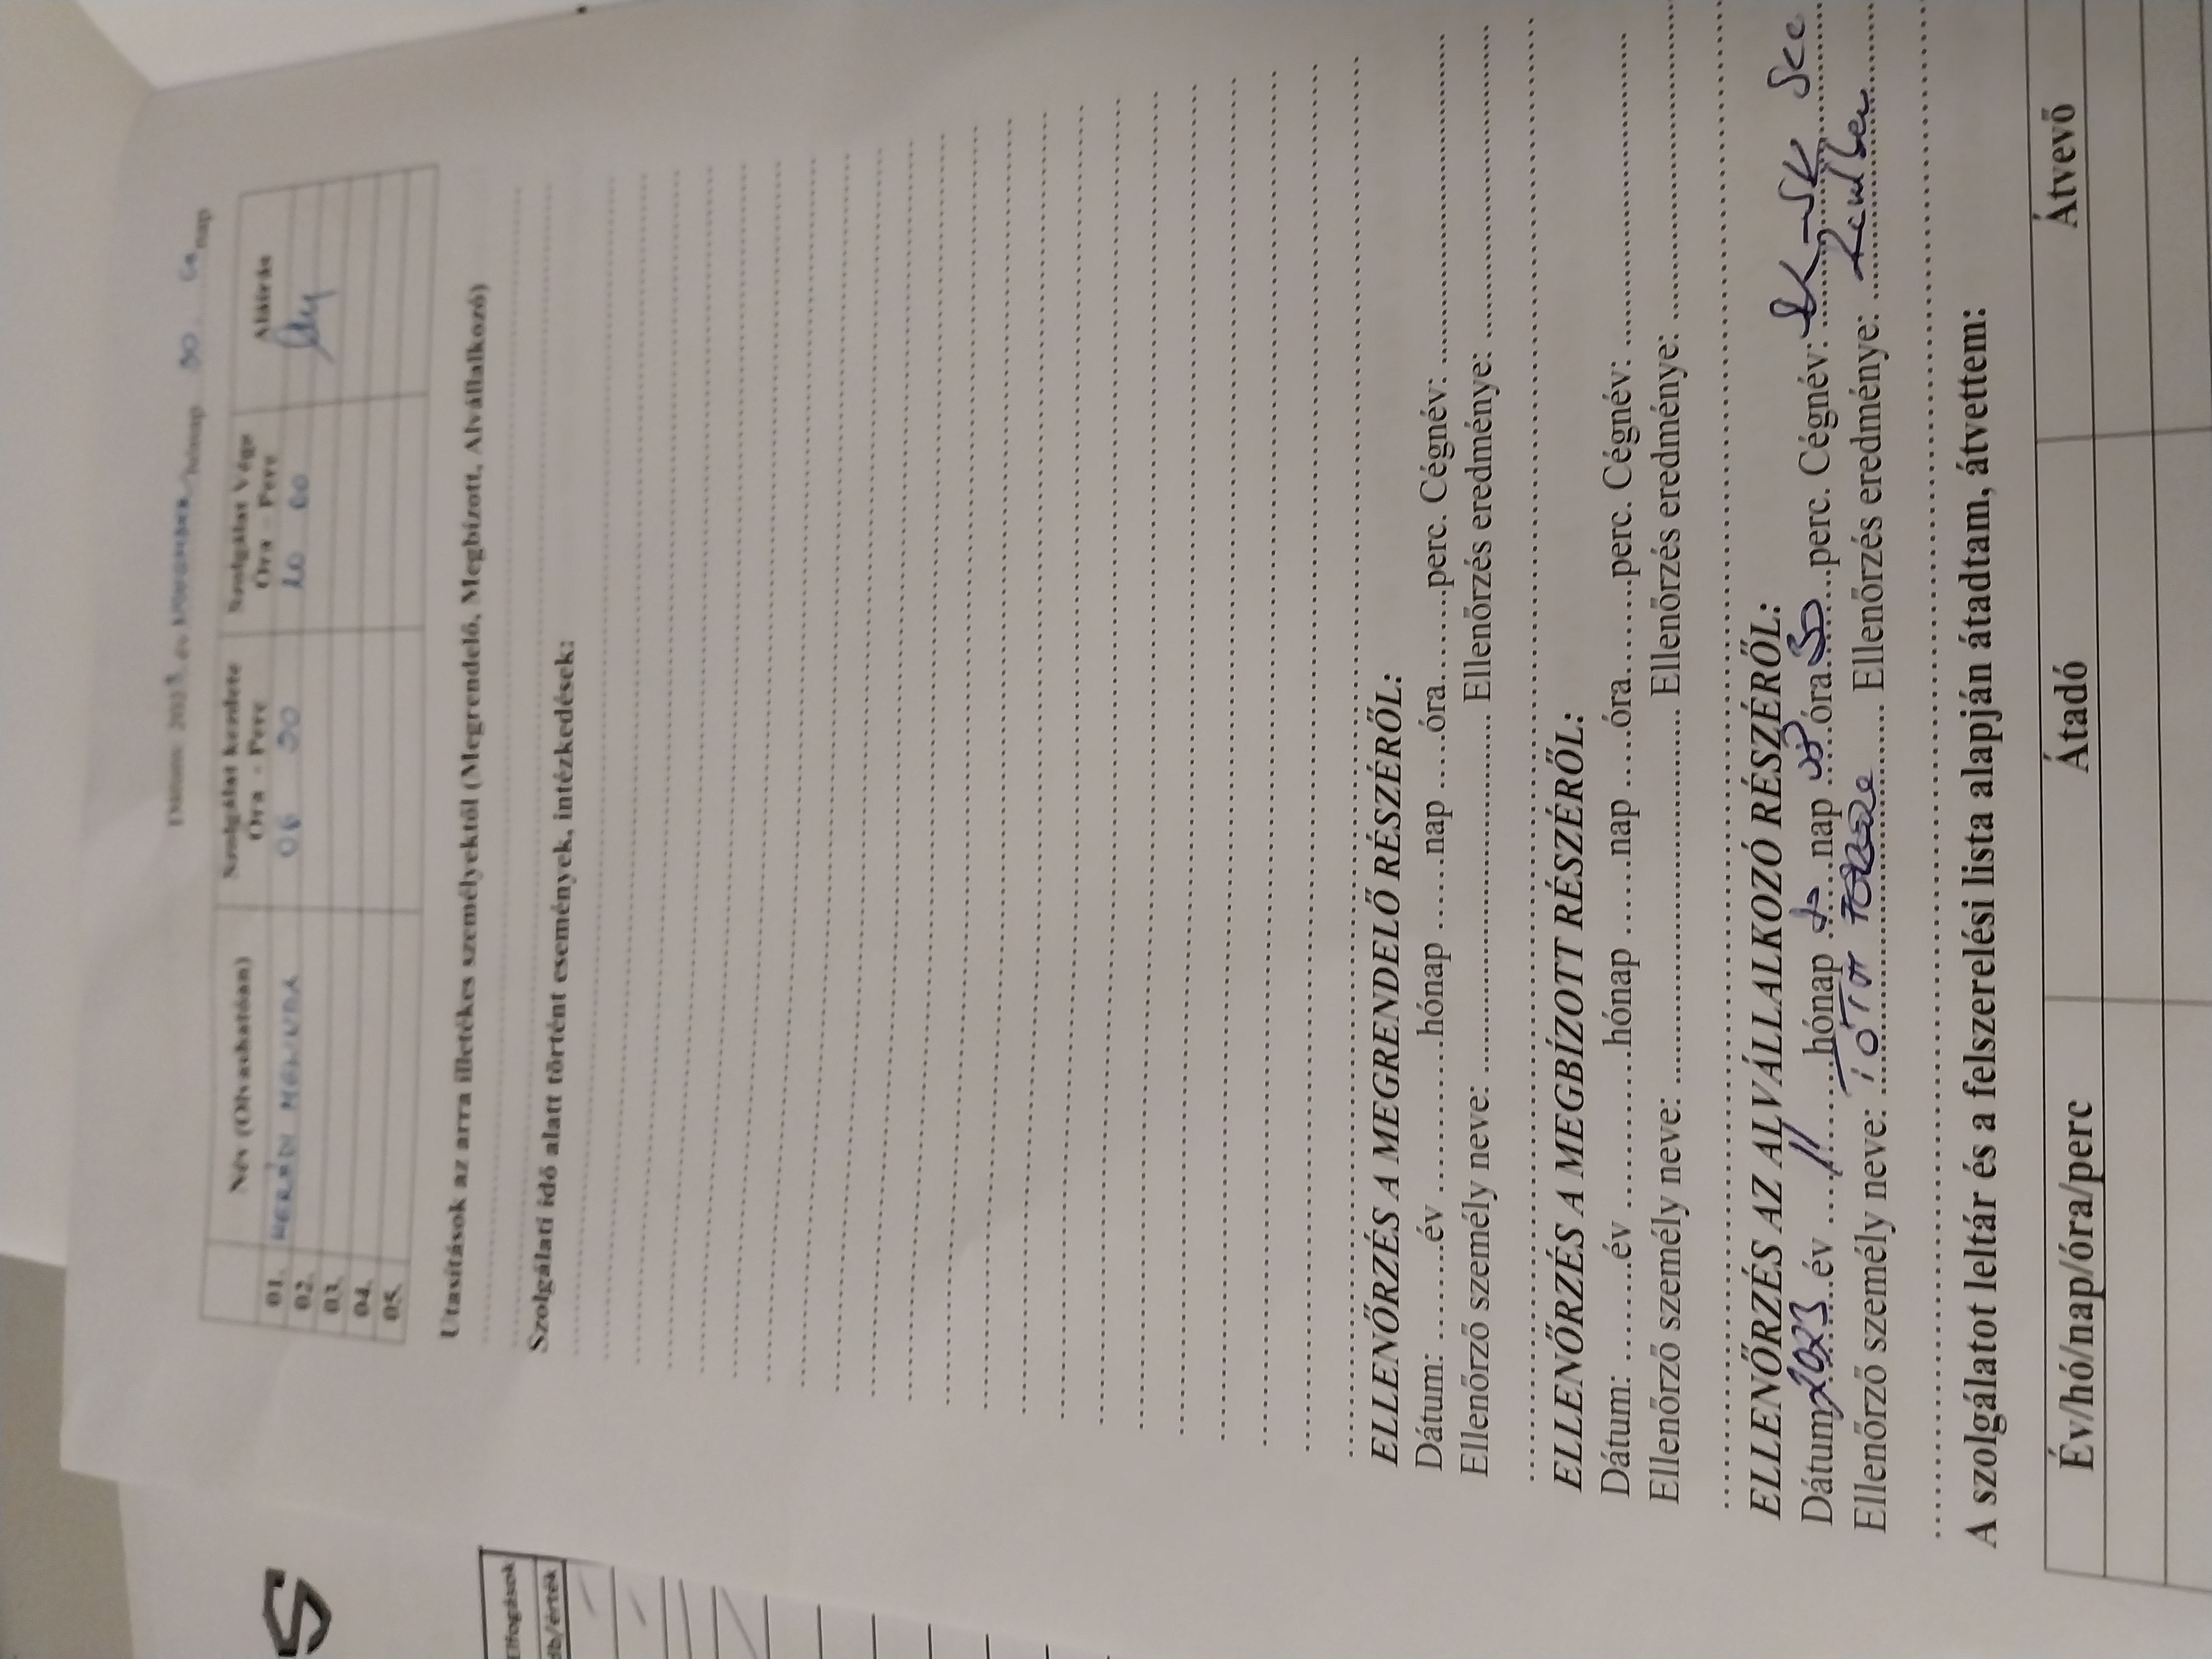 Dátum: 2023 év NOVEMBER hónap 30. nap
Név (Olvashatóan) Szolgálat kezdete Óra - Perc Szolgálat Vége Óra - Perc Aláírás
01. MÓNIKA 06 00 20 00
02.
03.
04.
05.
Utasítások az arra illetékes személyektől (Megrendelő, Megbízott, Alvállalkozó)
Szolgálati idő alatt történt események, intézkedések:
ELLENŐRZÉS A MEGRENDELŐ RÉSZÉRŐL:
Dátum: ........év ............hónap ......nap .....óra.......perc. Cégnév: ..............................
Ellenőrző személy neve: ........................................ Ellenőrzés eredménye: ..............................
ELLENŐRZÉS A MEGBÍZOTT RÉSZÉRŐL:
Dátum: ........év ............hónap ......nap .....óra.......perc. Cégnév: ..............................
Ellenőrző személy neve: ........................................ Ellenőrzés eredménye: ..............................
ELLENŐRZÉS AZ ALVÁLLALKOZÓ RÉSZÉRŐL:
Dátum: 2023 év 11 hónap nap óra 30 perc. Cégnév: Sec
Ellenőrző személy neve: TÓTH Ellenőrzés eredménye: Rendben
A szolgálatot leltár és a felszerelési lista alapján átadtam, átvettem:
Év/hó/nap/óra/perc Átadó Átvevő
S
Elfogások
db/érték